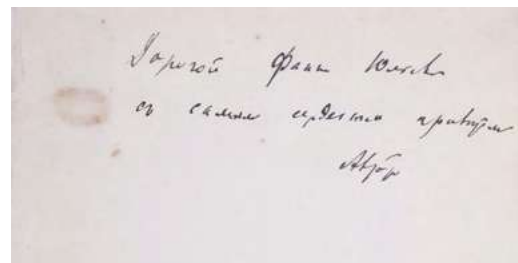 Дорогой Фани Юльевне
съ самым сердечным приветом
Автор